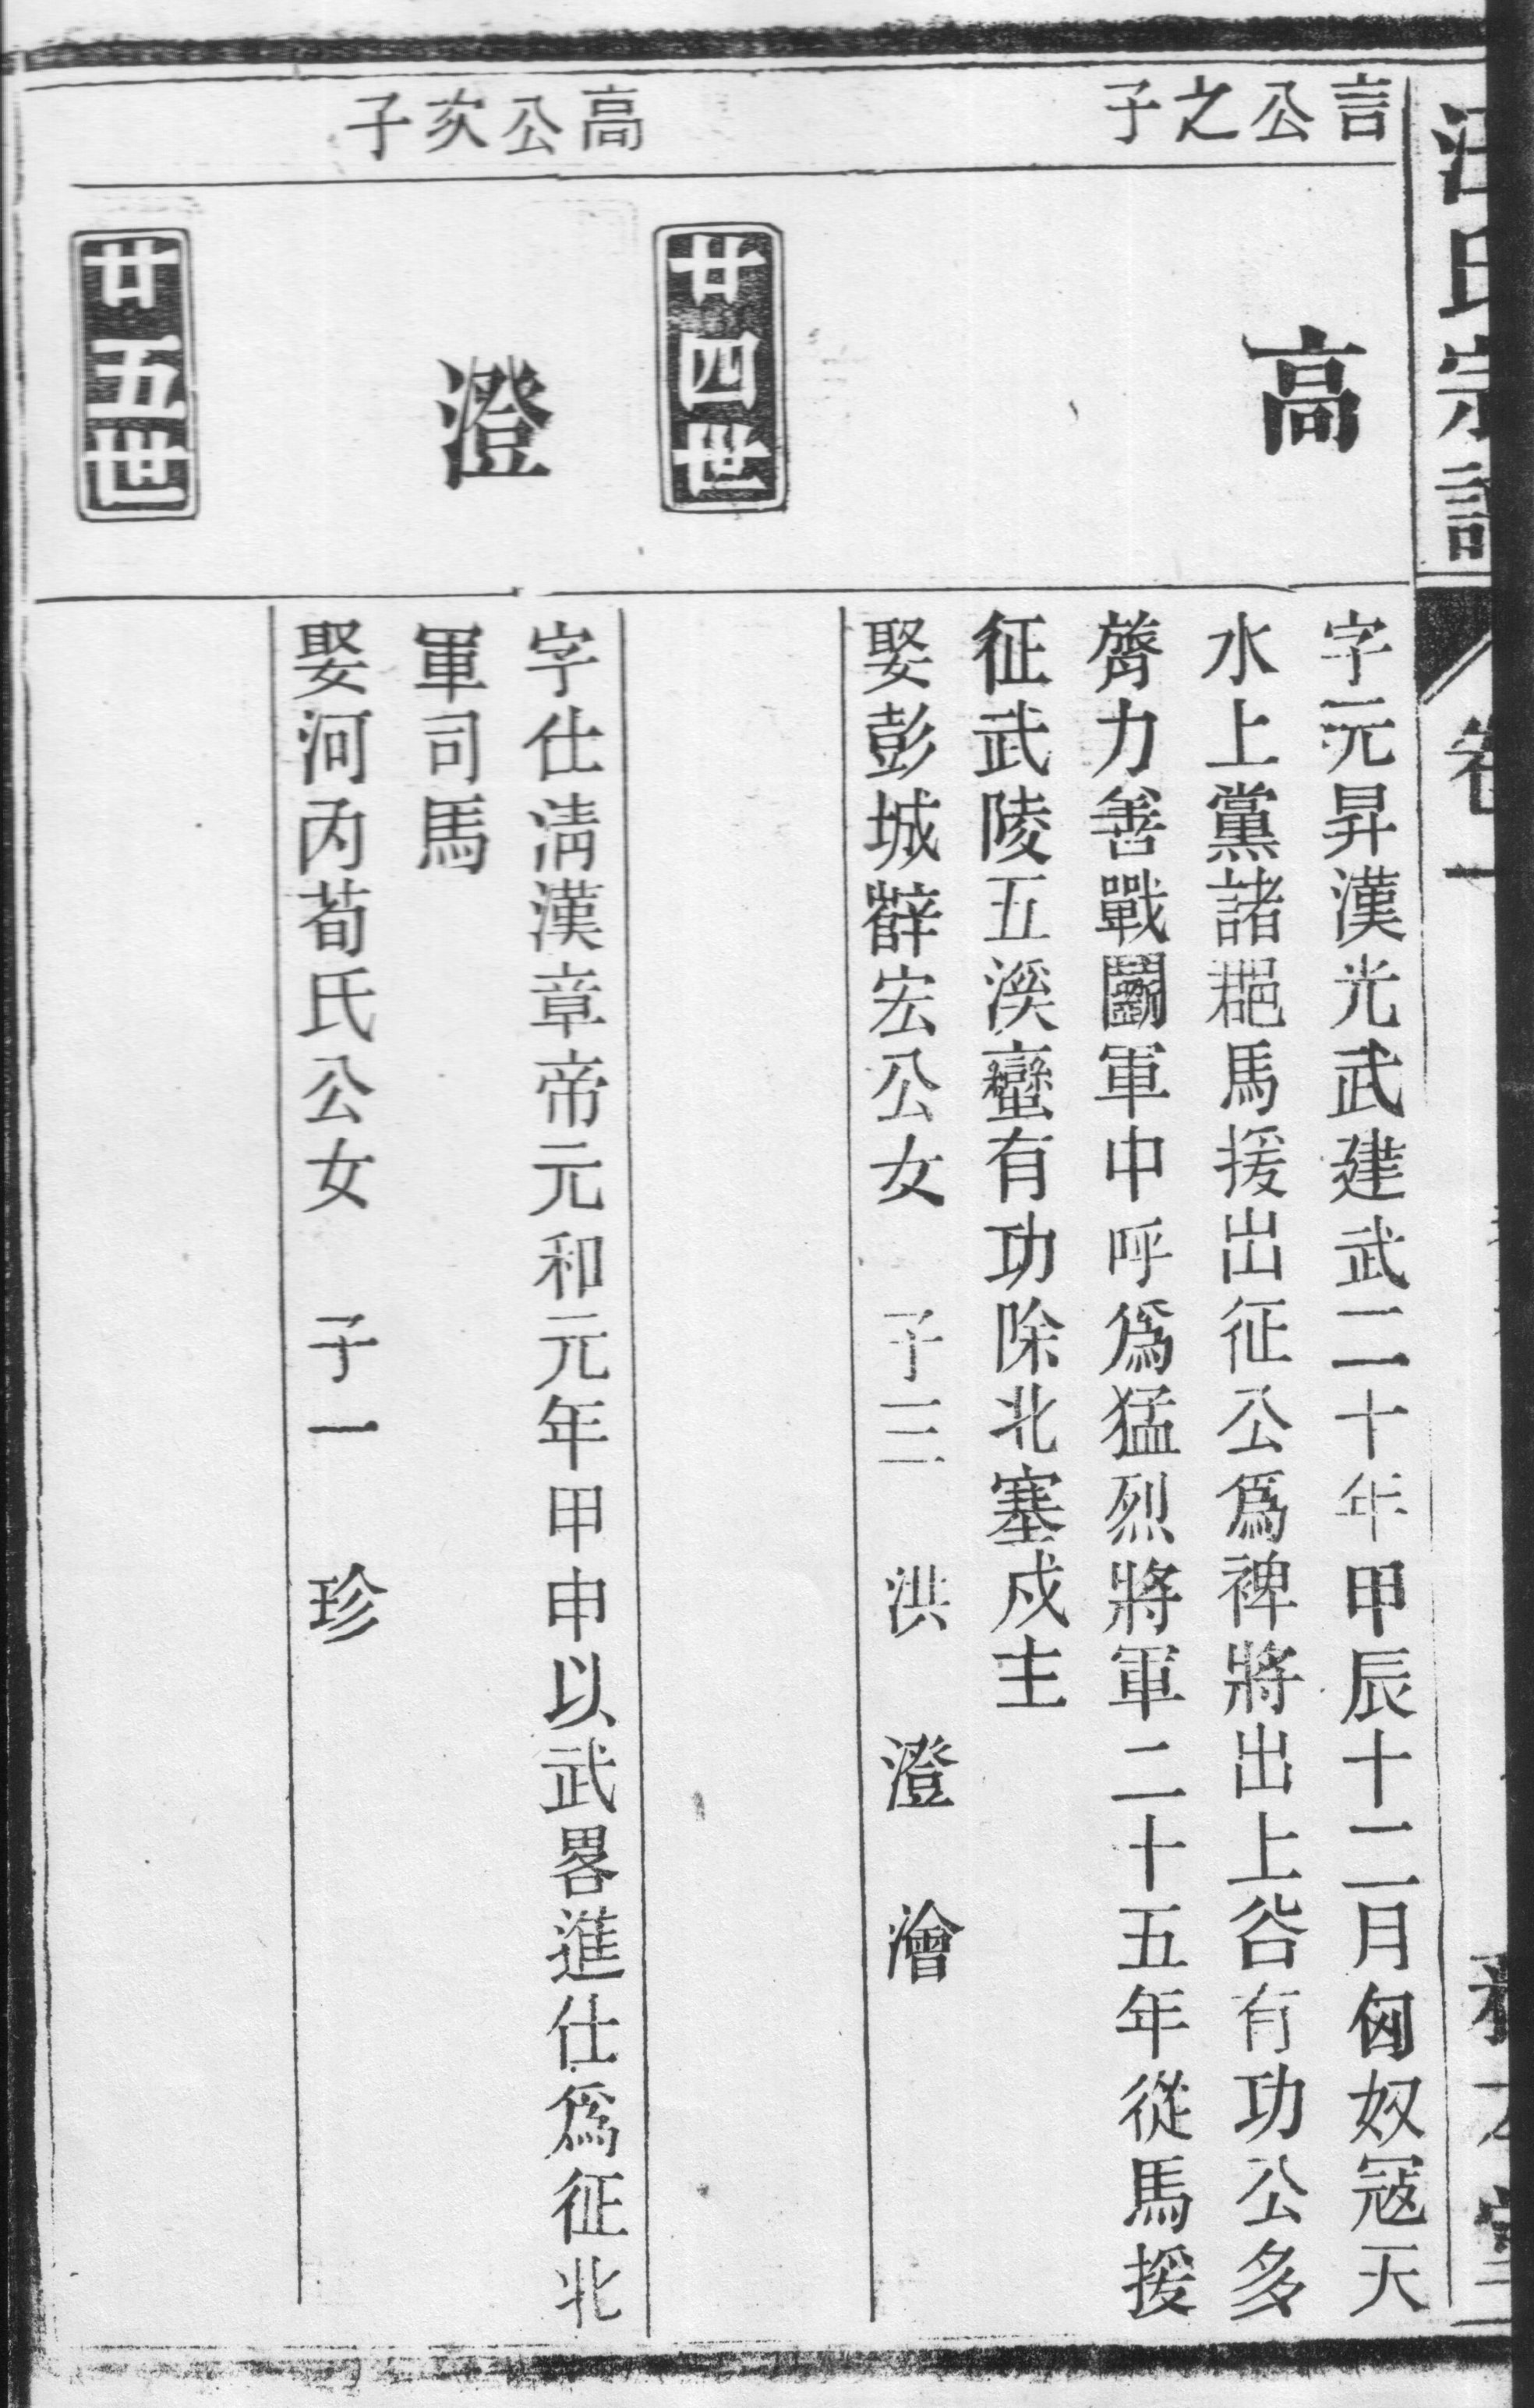 汪氏宗譜
卷一
言公之子
高
字元昇漢光武建武二十年甲辰十二月匈奴寇天
水上黨諸郡馬援出征公爲裨將出上谷有功公多
膂力善戰鬭軍中呼爲猛烈將軍二十五年從馬援
征武陵五溪蠻有功除北塞戍主
娶彭城薛宏公女 子三 洪 澄 澮
廿四世
高公次子
澄
字仕清漢章帝元和元年甲申以武畧進仕爲征北
軍司馬
娶河內荀氏公女 子一 珍
廿五世